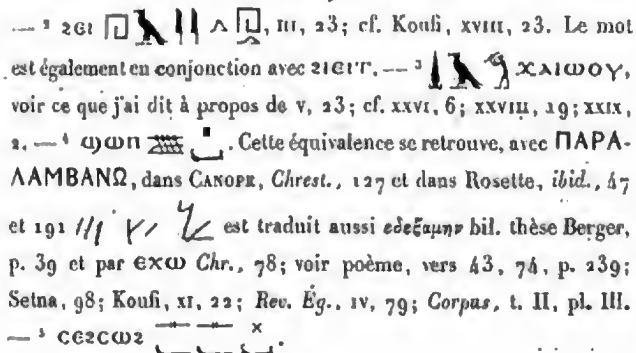 — ² ϩⲉⲓ , III, 23; cf. Koufi, XVIII, 23. Le mot
est également en conjonction avec ϩⲓⲉⲓⲧ. — ³ ⲭⲁⲓⲱⲟⲩ,
voir ce que j'ai dit à propos de V, 23; cf. XXVI, 6; XXVIII, 19; XXIX,
2. — ⁴ ϣⲱⲡ . Cette équivalence se retrouve, avec ΠΑΡΑ-
ΛΑΜΒΑΝΩ, dans CANOPE, Chrest., 127 et dans Rosette, ibid., 47
et 191 est traduit aussi εδεξαμην bil. thèse Berger,
p. 39 et par ΕΧΩ Chr., 78; voir poème, vers 43, 74, p. 239;
Setna, 98; Koufi, XI, 22; Rev. Ég., IV, 79; Corpus, t. II, pl. III.
— ⁵ ⲥⲉϩⲥⲱϩ .